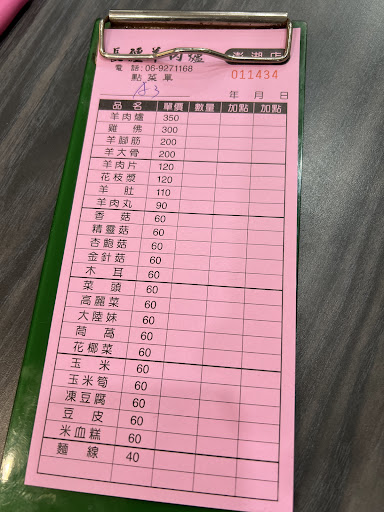 羊肉爐 澎湖店
電話:06-9271168
點菜單 011434
A3 年 月 日
品名 單價 數量 加點 加點
羊肉爐 350
雞佛 300
羊腳筋 200
羊大骨 200
羊肉片 120
花枝漿 120
羊肚 110
羊肉丸 90
香菇 60
精靈菇 60
杏鮑菇 60
金針菇 60
木耳 60
菜頭 60
高麗菜 60
大陸妹 60
茼萵 60
花椰菜 60
玉米 60
玉米筍 60
凍豆腐 60
豆皮 60
米血糕 60
麵線 40